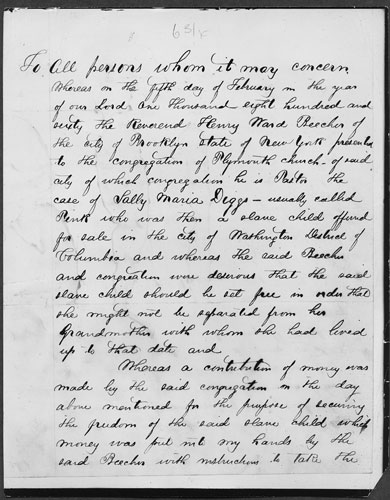 651
To All persons whom it may concern
Whereas on the fifth day of February in the year
of our Lord One thousand eight hundred and
sixty the Reverend Henry Ward Beecher of
the city of Brooklyn State of New York presented
to the congregation of Plymouth church of said
city of which congregation he is Pastor the
case of Sally Maria Diggs - usually called
Pink who was then a slave child offered
for sale in the city of Washington District of
Columbia and whereas the said Beecher
and congregation were desirous that the said
slave child should be set free in order that
she might not be separated from her
Grandmother with whom she had lived
up to that date and
Whereas a contribution of money was
made by the said congregation on the day
above mentioned for the purpose of securing
the freedom of the said slave child which
money was put into my hands by the
said Beecher with instructions to take the